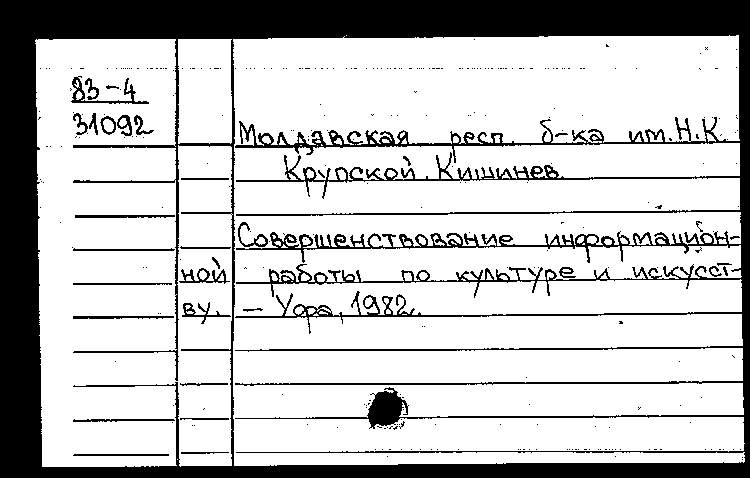 83-4
31092
Молдавская респ. б-ка им. Н.К.
Крупской. Кишинев.
Совершенствование информацион-
ной работы по культуре и искусст-
ву. — Уфа, 1982.